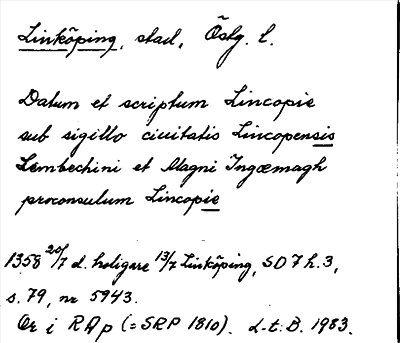 Linköping, stad, Östg. l.
Datum et scriptum Lincopie
sub sigillo ciuitatis Lincopensis
Lembechini et Magni Ingæmagh
proconsulum Lincopie
1358 20/7 d. heligare 13/7 Linköping, SD 7 h.3,
s. 79, nr 5943.
Or i RAp (=SRP 1810). L-t: B. 1983.